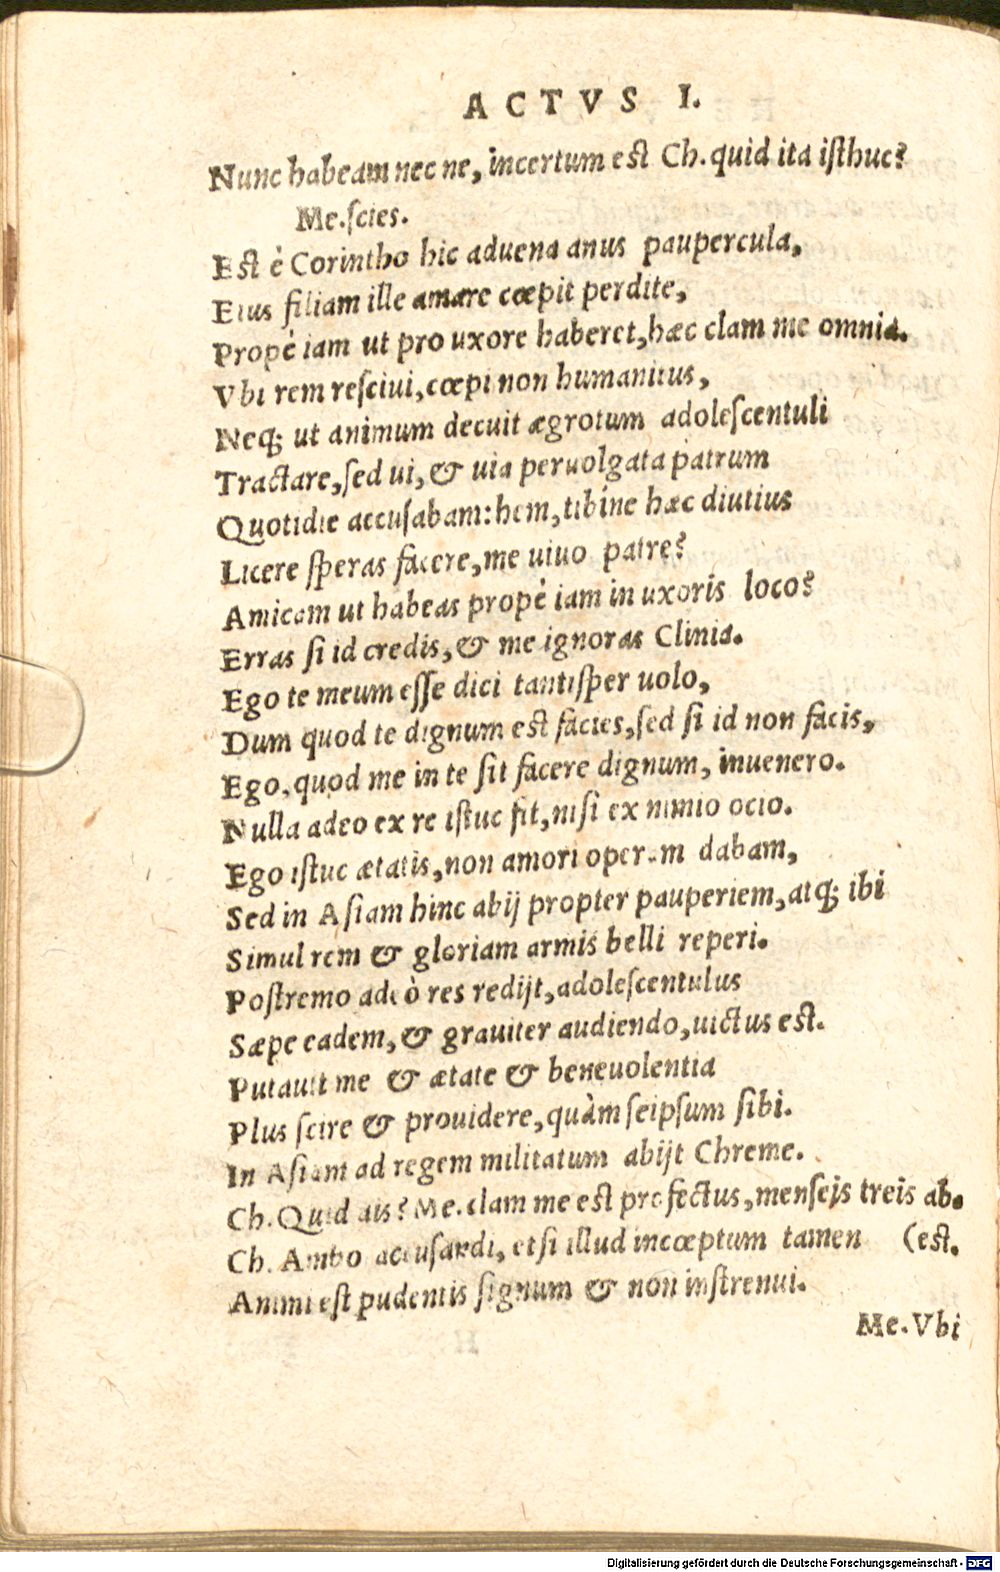 ACTVS I.
Nunc habeam nec ne, incertum est Ch. quid ita isthuc?
Me. scies.
Est è Corintho hic aduena anus paupercula,
Eius filiam ille amare cœpit perdite,
Propè iam ut pro uxore haberet, hæc clam me omnia.
Vbi rem resciui, cœpi non humanitus,
Neq; ut animum decuit ægrotum adolescentuli
Tractare, sed ui, & uia peruolgata patrum
Quotidie accusabam: hem, tibíne hæc diutius
Licere speras facere, me uiuo patre?
Amicam ut habeas propè iam in uxoris loco?
Erras si id credis, & me ignoras Clinia.
Ego te meum esse dici tantisper uolo,
Dum quod te dignum est facies, sed si id non facis,
Ego, quod me in te sit facere dignum, inuenero.
Nulla adeo ex re istuc fit, nisi ex nimio ocio.
Ego istuc ætatis, non amori operam dabam,
Sed in Asiam hinc abij propter pauperiem, atq; ibi
Simul rem & gloriam armis belli reperi.
Postremo adeò res redijt, adolescentulus
Sæpe eadem, & grauiter audiendo, uictus est.
Putauit me & ætate & beneuolentia
Plus scire & prouidere, quàm seipsum sibi.
In Asiam ad regem militatum abijt Chreme.
Ch. Quid ais? Me. clam me est profectus, menseis treis ab.
Ch. Ambo accusandi, etsi illud incœptum tamen (est.
Animi est pudentis signum & non instrenui.
Me. Vbi
Digitalisierung gefördert durch die Deutsche Forschungsgemeinschaft - DFG